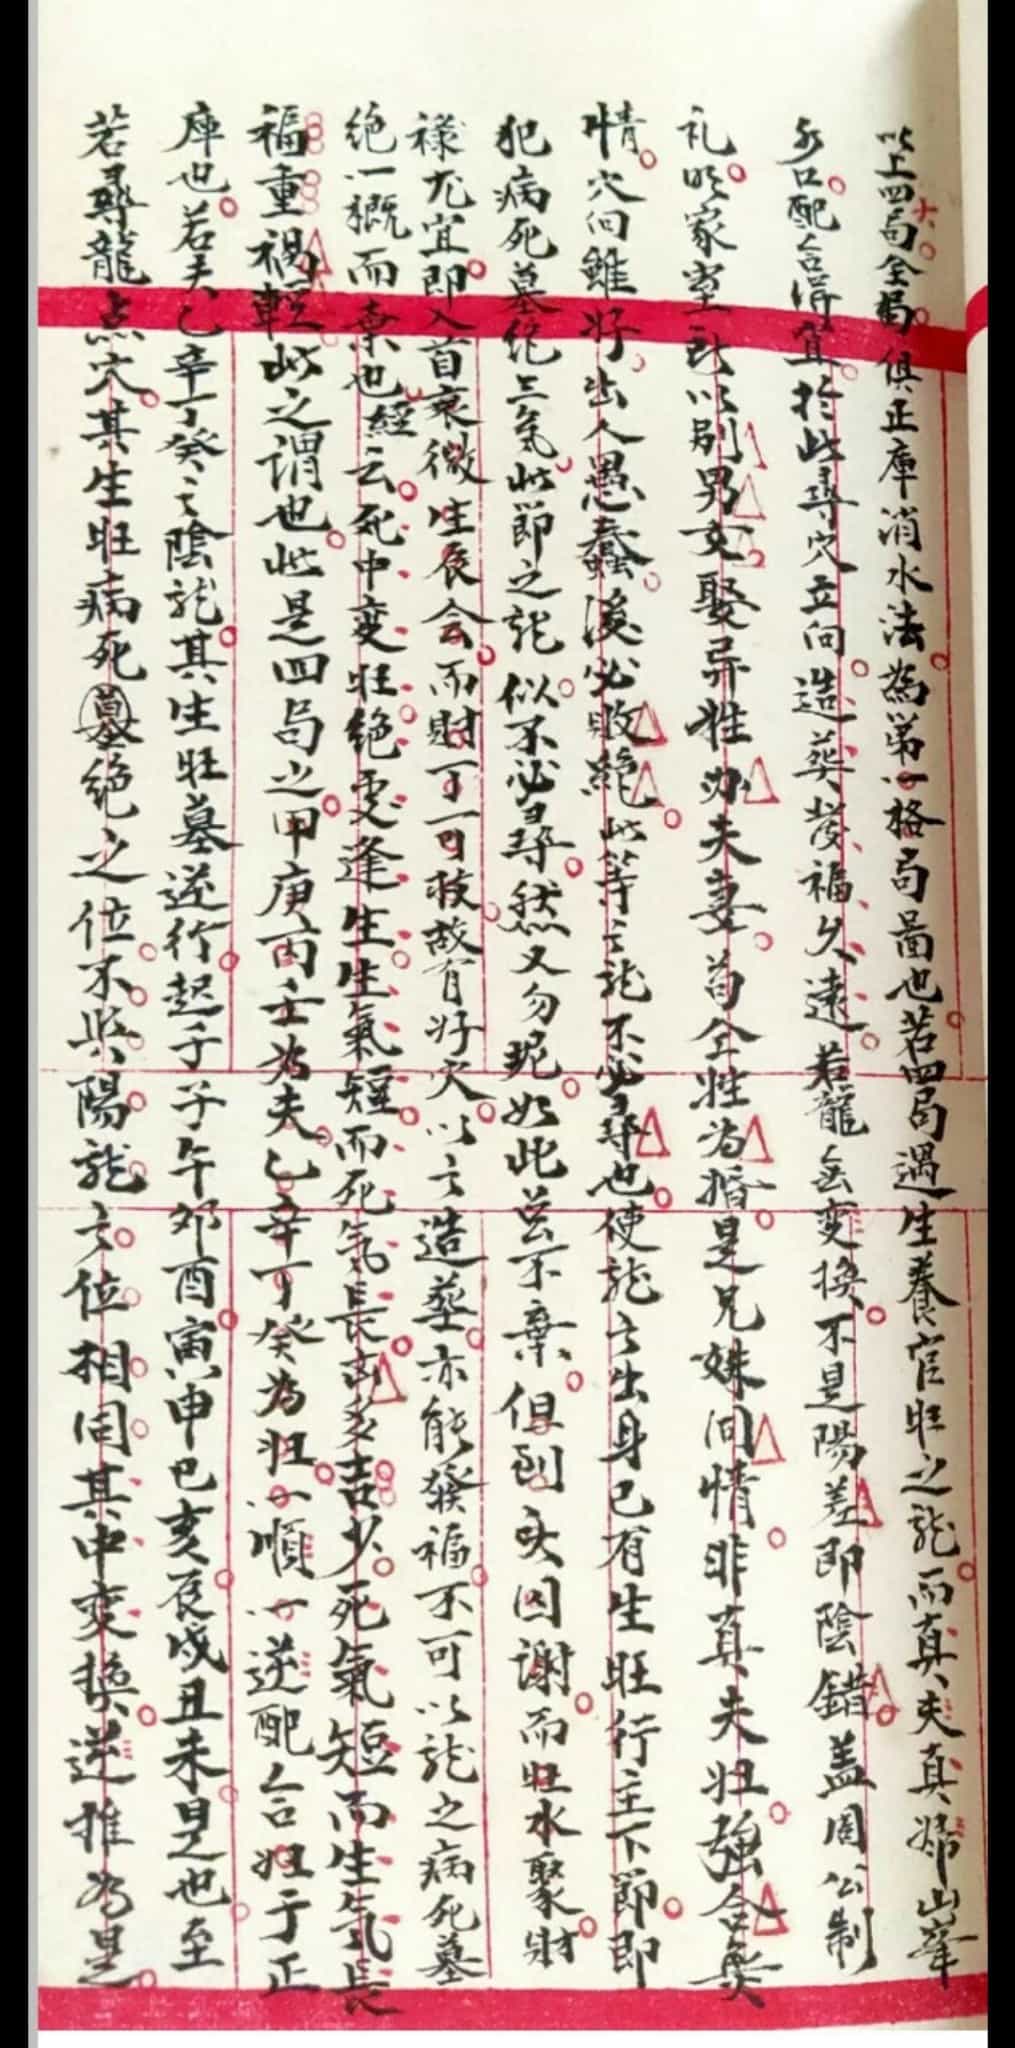 以上四局全局俱正庫消水法為第一格局圖也若四局遇生養官旺之龍而真夫真婦山峯
水口配合得宜於此尋穴立向造葬發福久遠若龍無变換不是陽差即陰錯蓋周公制
礼明家室所以别男女娶异牲办夫妻苟仝牲為婚是兄妹同情非真夫妇強合無
情穴向雖好出人愚蠢後必敗絕此等之龍不必尋也使龍之出身已有生旺行至下節即
犯病死墓绝三氣此節之龍似不必尋然又勿現如此芸不棄但到头因謝而旺水聚財
禄尤宜即入首衰微生辰会而財丁可救故有好穴以之造葬亦能發福不可以龍之病死墓
绝一概而棄也經云死中变旺绝受逢生生氣短而死氣長凶多吉少死氣短而生气長
福重禍輕此之謂也此是四局之甲庚丙壬為夫乙辛丁癸為妇一順一逆配合归于正
庫也若夫乙辛丁癸之陰龍其生旺墓逆行起于子午卯酉寅申巳亥辰戌丑未是也至
若尋龍点穴其生旺病死墓绝之位不與陽龍之位相同其中变換逆推為是